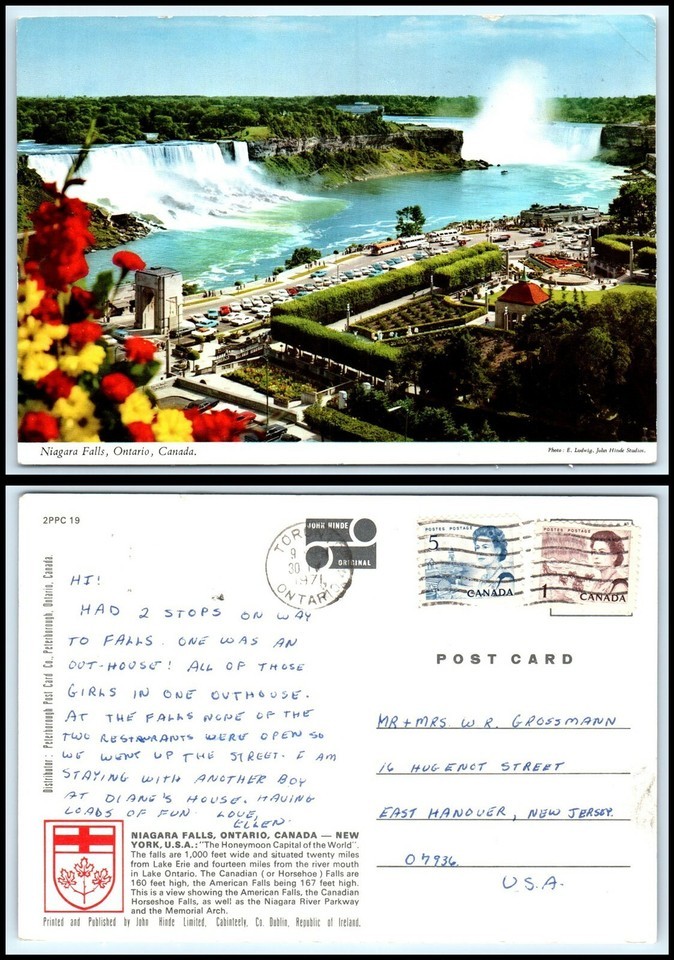 Niagara Falls, Ontario, Canada.
Photo: E. Ludwig, John Hinde Studios.
2PPC 19
JOHN HINDE
ORIGINAL
TORONTO
9
30
1971
ONTARIO
POSTES POSTAGE
5
CANADA
POSTES POSTAGE
1
CANADA
Distributor: Peterborough Post Card Co., Peterborough, Ontario, Canada.
HI!
HAD 2 STOPS ON WAY
TO FALLS. ONE WAS AN
OUT-HOUSE! ALL OF THOSE
GIRLS IN ONE OUTHOUSE.
AT THE FALLS NONE OF THE
TWO RESTAURANTS WERE OPEN SO
WE WENT UP THE STREET. I AM
STAYING WITH ANOTHER BOY
AT DIANE'S HOUSE. HAVING
LOADS OF FUN. LOVE,
ELLEN.
POST CARD
MR + MRS W. R. GROSSMANN
16 HUGENOT STREET
EAST HANOVER, NEW JERSEY.
07936.
U.S.A.
NIAGARA FALLS, ONTARIO, CANADA — NEW
YORK, U.S.A.: "The Honeymoon Capital of the World".
The falls are 1,000 feet wide and situated twenty miles
from Lake Erie and fourteen miles from the river mouth
in Lake Ontario. The Canadian (or Horsehoe) Falls are
160 feet high, the American Falls being 167 feet high.
This is a view showing the American Falls, the Canadian
Horseshoe Falls, as well as the Niagara River Parkway
and the Memorial Arch.
Printed and Published by John Hinde Limited, Cabinteely, Co. Dublin, Republic of Ireland.